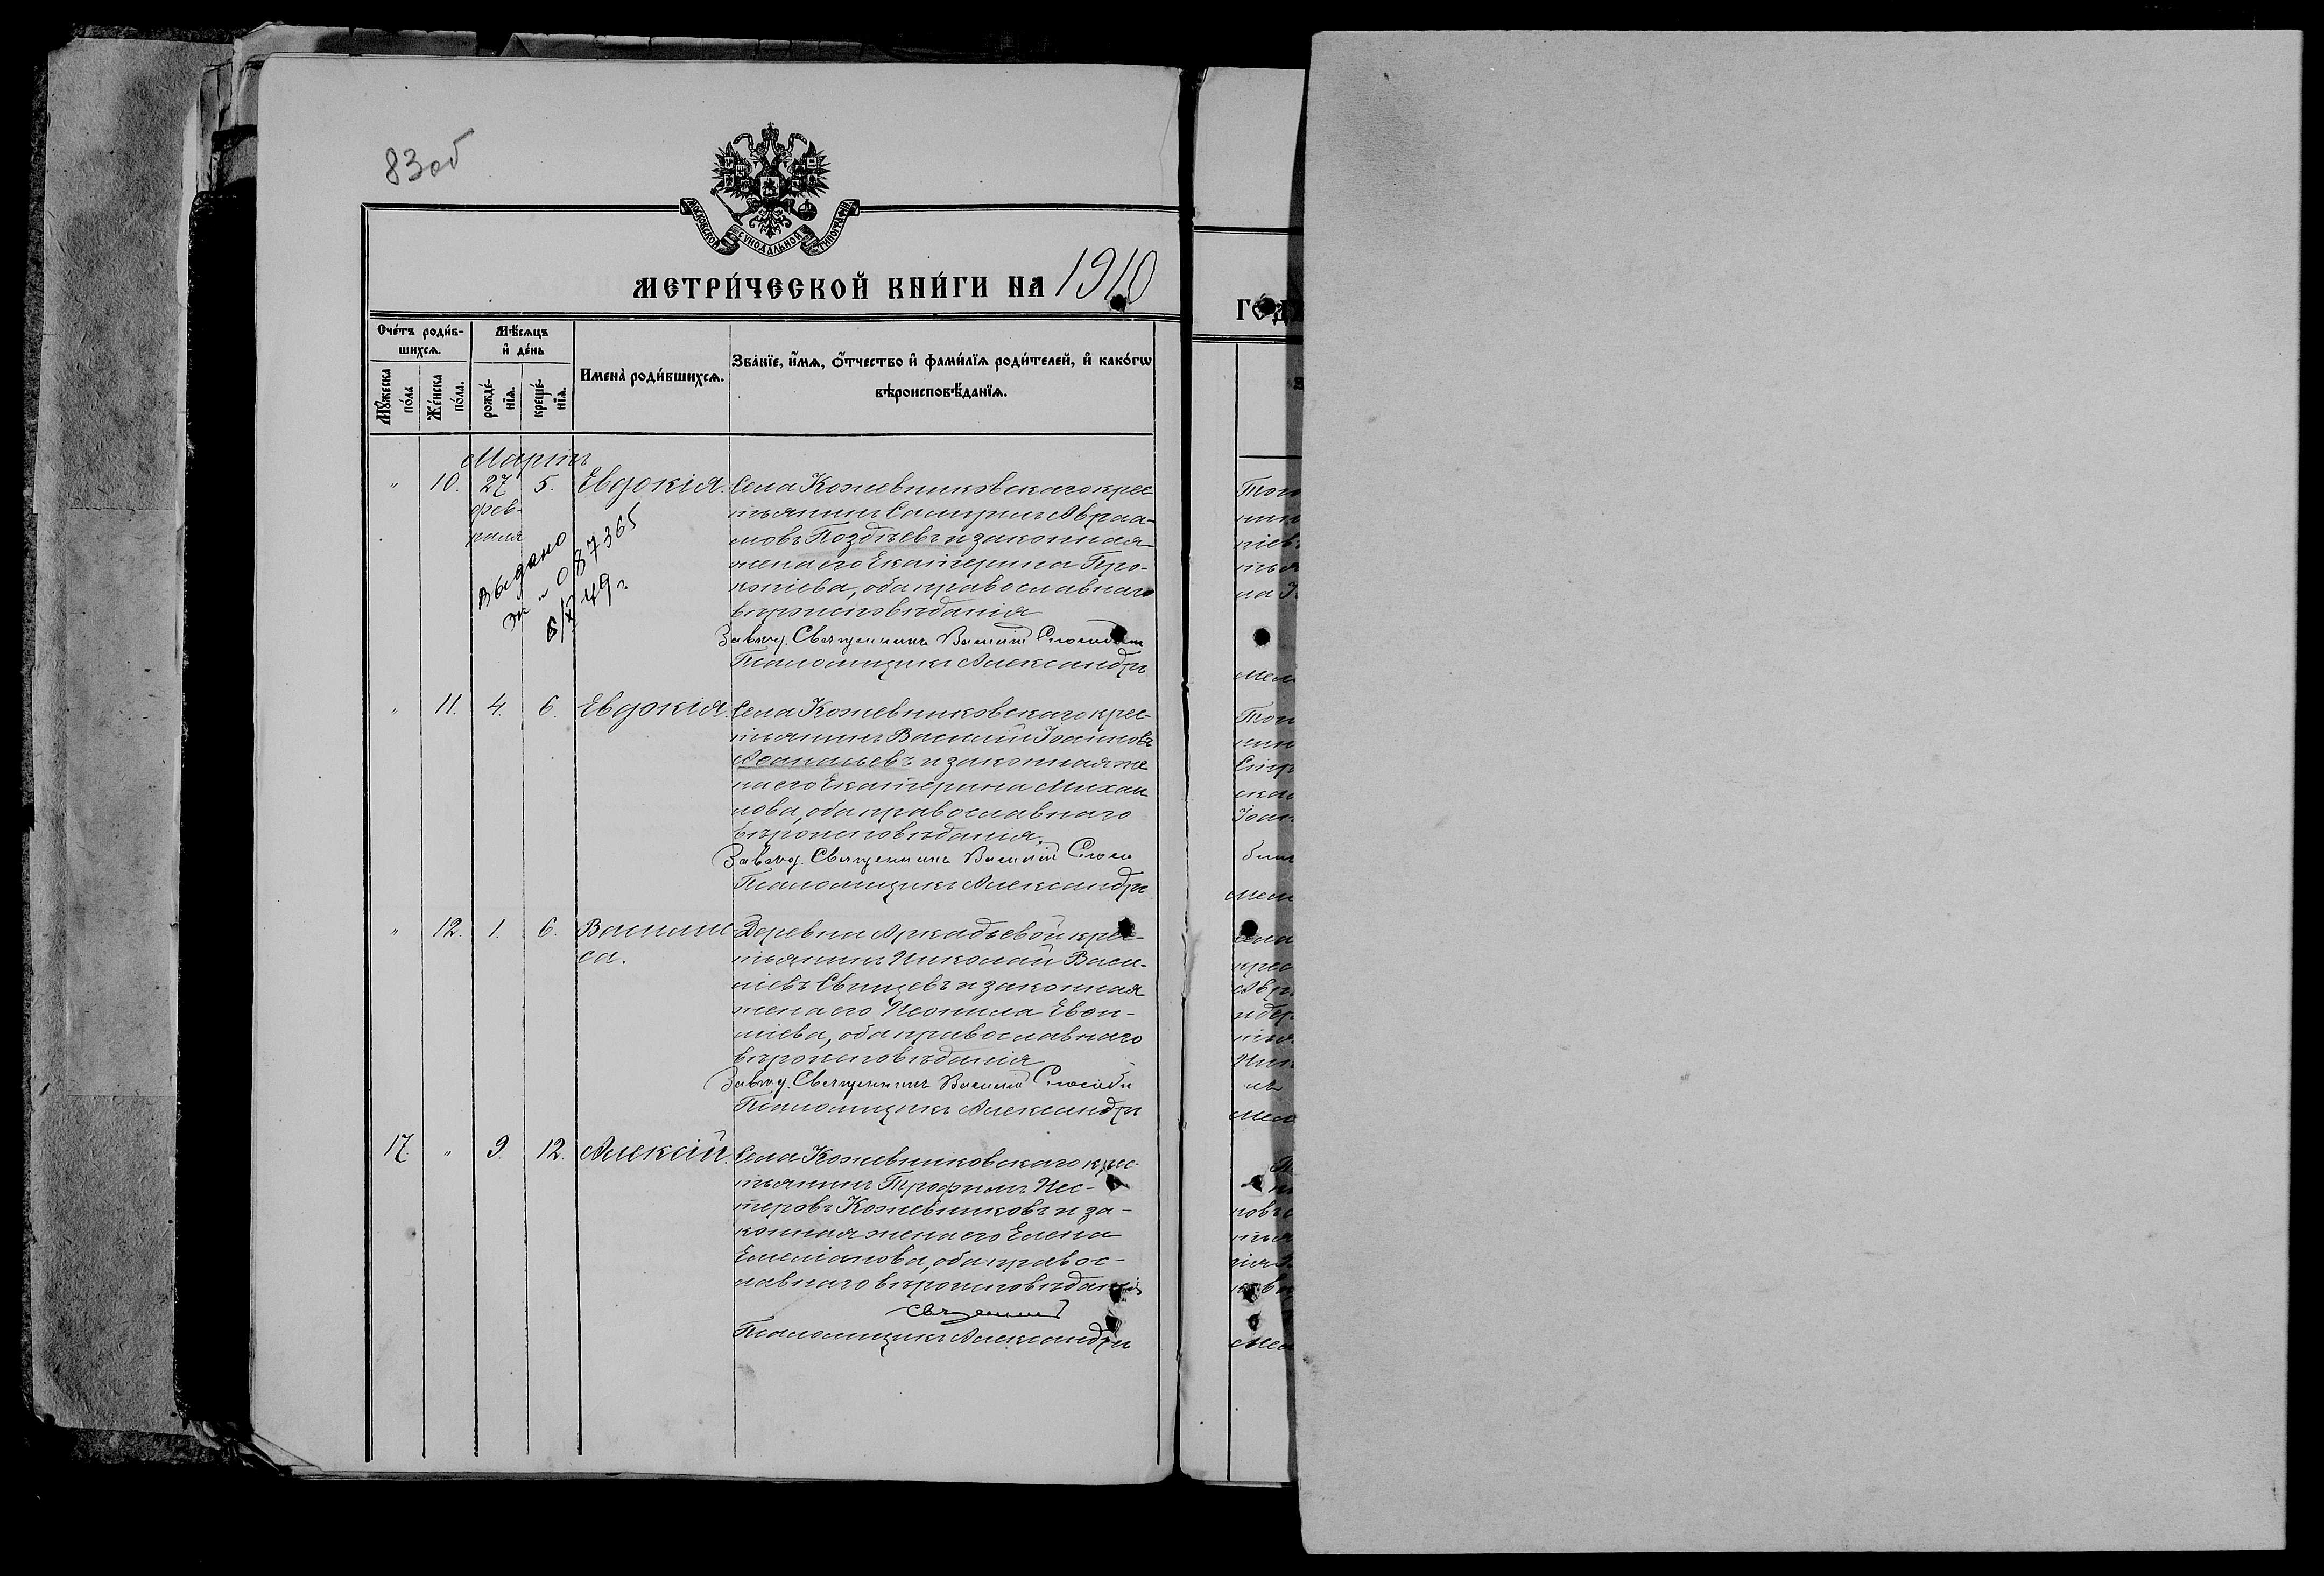 83об
МОСКОВСКОЙ СѴНОДАЛЬНОЙ ТИПОГРАФІИ
МЕТРИ́ЧЕСКОЙ КНИ́ГИ НА 1910
Сче́тъ роди́в-
шихсѧ.
Мѣ́сѧцъ
и҆ де́нь
Мꙋ́жеска
по́ла
Же́нска
по́ла.
рожде́-
нїѧ.
креще́-
нїѧ.
Имена̀ роди́вшихсѧ.
Зва́нїе, и҆́мѧ, ѻ҆́тчество и҆ фами́лїѧ роди́телей, и҆ како́гѡ
вѣроисповѣ́данїѧ.
ГО́Д
Мартъ
" 10. 27 5. Евдокія. Села Кожевниковскаго крес
фев-
раля
тьянинъ Авраа-
мовъ Поздѣевъ и законная
жена его Екатерина Про-
копіева, оба православнаго
вѣроисповѣданія
Выдано
087365
49 г.
Завѣд. Священникъ Василій
Псаломщикъ Александръ
" 11. 4. 6. Евдокія. Села Кожевниковскаго крес-
тьянинъ Василій Іоанновъ
Аѳанасьевъ и законная же
на его Екатерина Михаи
лова, оба православнаго
вѣроисповѣданія.
Завѣд. Священникъ Василій
Псаломщикъ Александръ
" 12. 1. 6. Васили
са.
Деревни Аркадьевой крес-
тьянинъ Николай Васи-
ліевъ Свинцевъ и законная
жена его Неонила Евѳи-
міева, оба православнаго
вѣроисповѣданія
Завѣд. Священникъ Василій
Псаломщикъ Александръ
17. " 9. 12. Алексій. Села Кожевниковскаго крес-
тьянинъ Трофимъ Нес-
теровъ Кожевниковъ и за-
конная жена его Елена
Емеліанова, оба правос-
лавнаго вѣроисповѣданія
Священник
Псаломщикъ Александръ